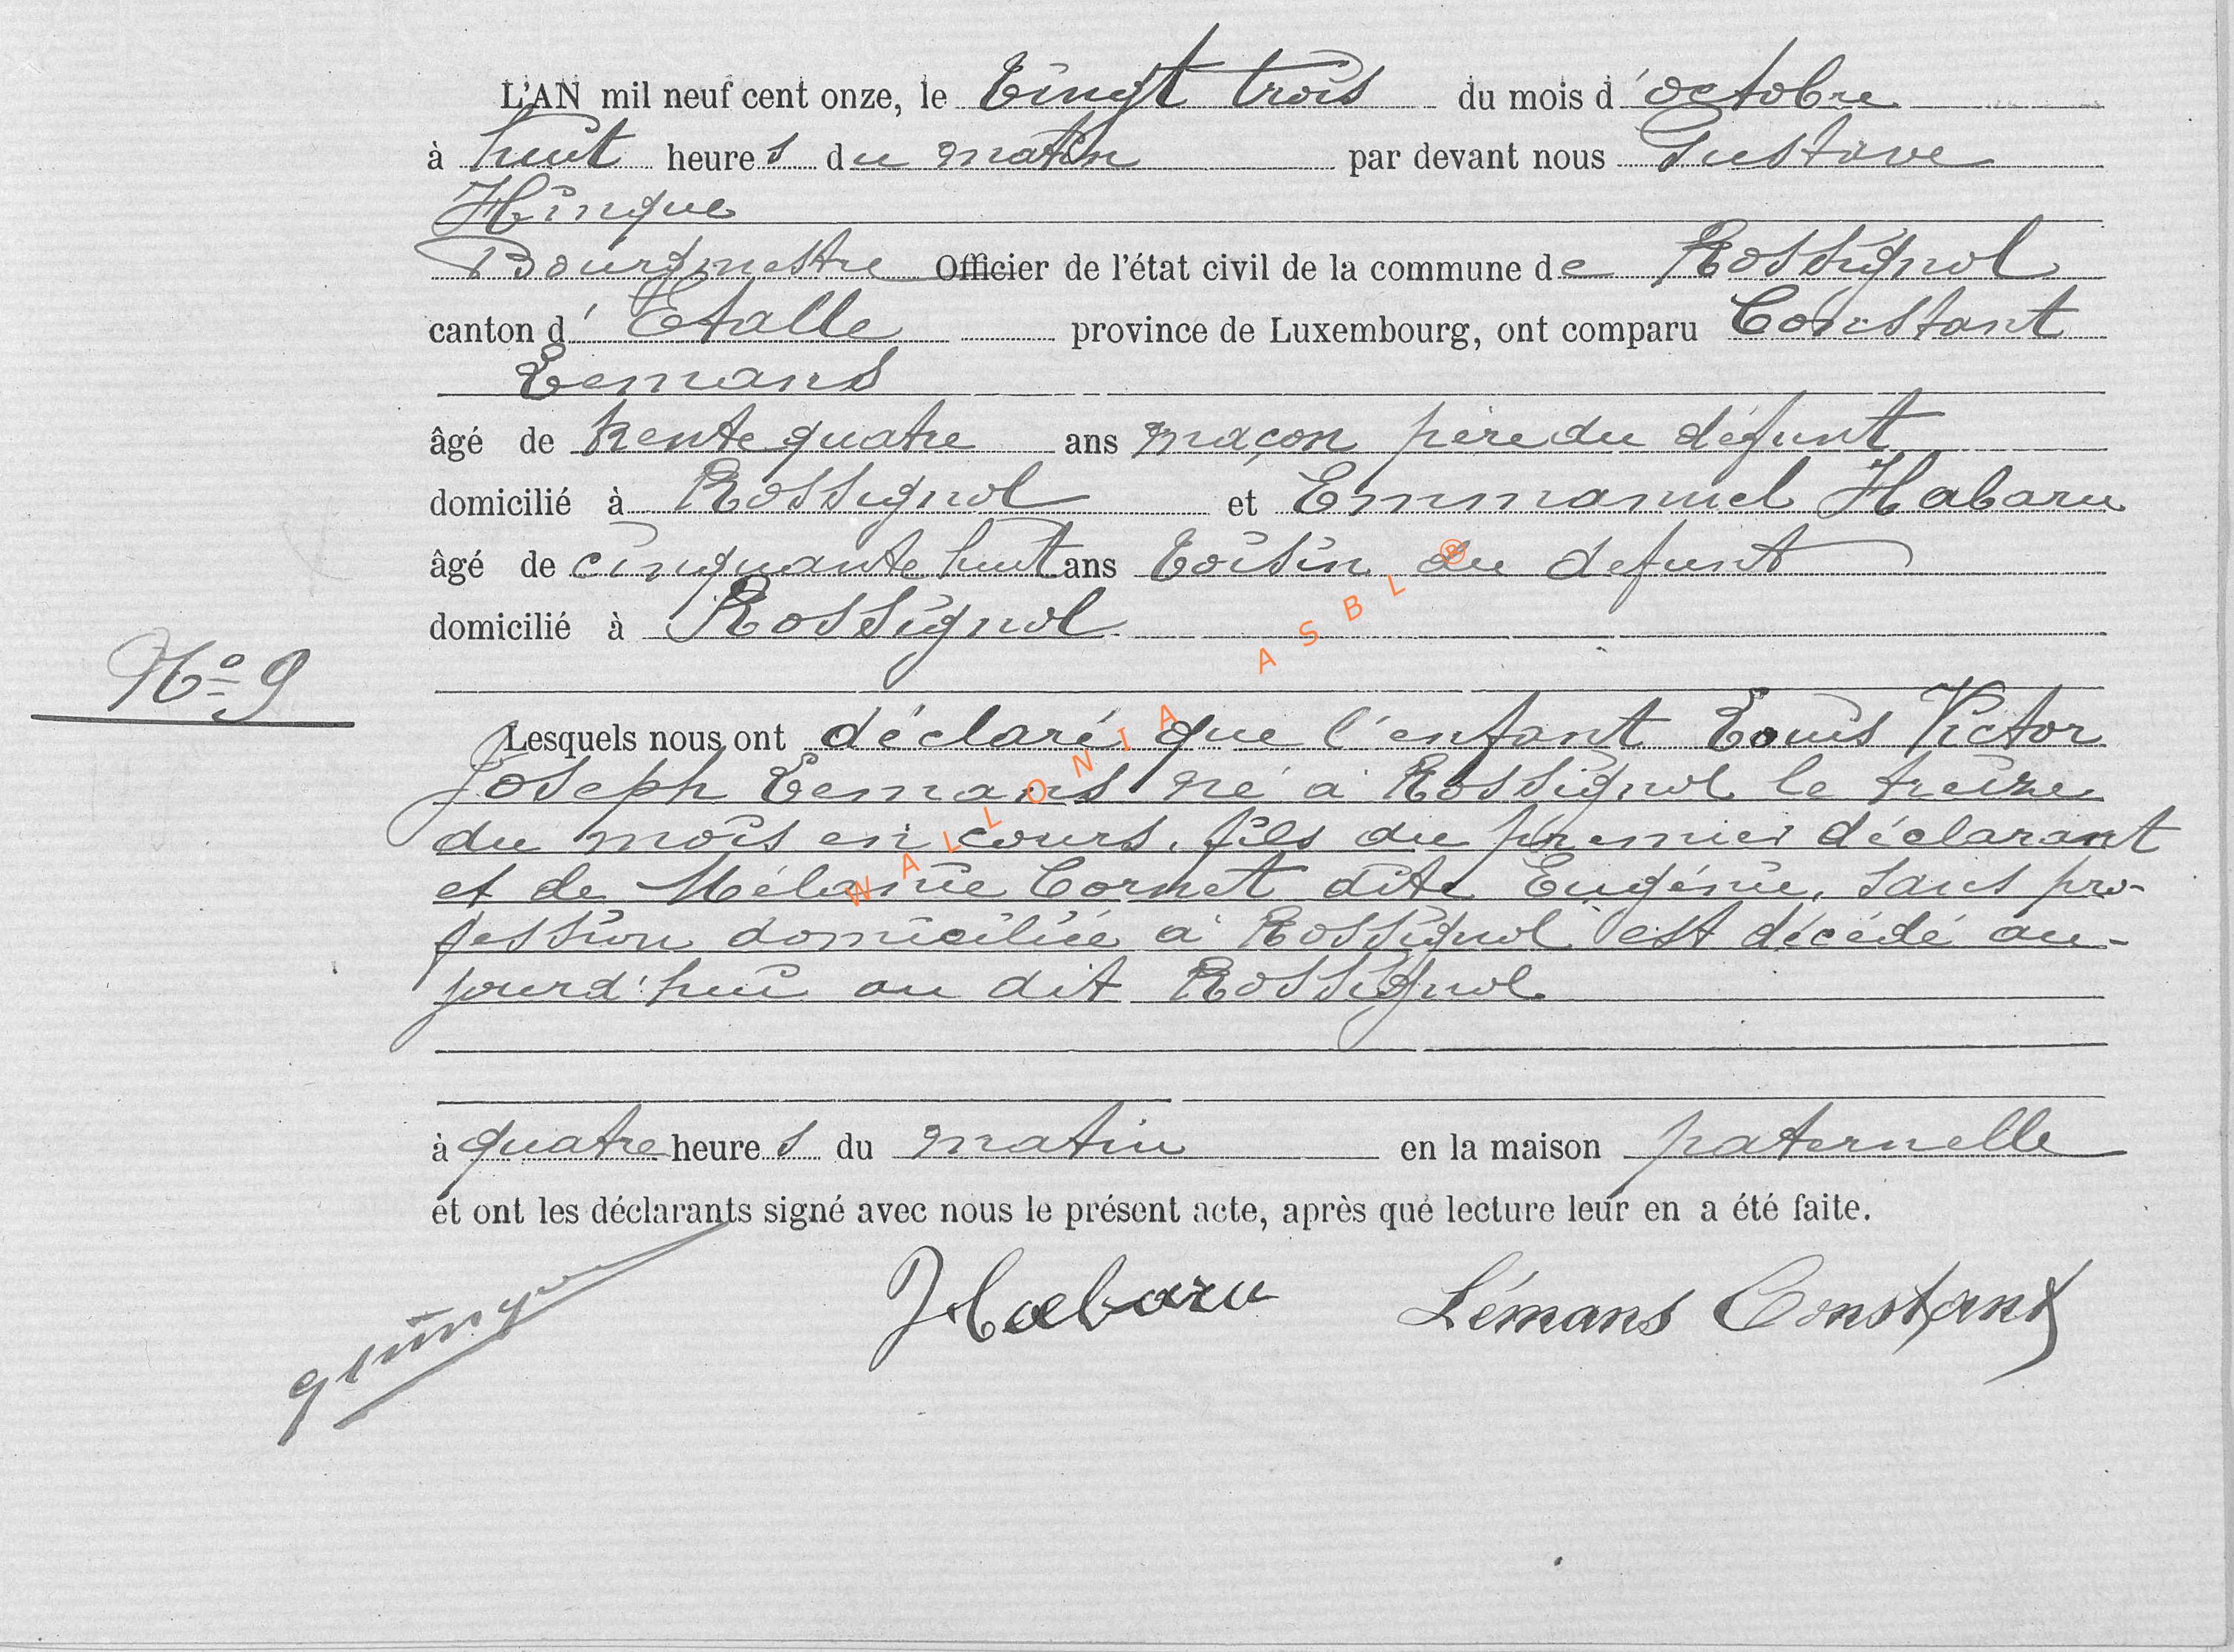 L'AN mil neuf cent onze, le vingt trois du mois d'octobre
à huit heures du matin par devant nous Gustave
Hinque
Bourgmestre Officier de l'état civil de la commune de Rossignol
canton d'Etalle province de Luxembourg, ont comparu Constant
Lemans
âgé de trente quatre ans maçon père du défunt
domicilié à Rossignol et Emmanuel Habaru
âgé de cinquante huit ans voisin du defunt
domicilié à Rossignol
No 9
Lesquels nous ont déclaré que l'enfant Louis Victor
Joseph Lemans né à Rossignol le treize
du mois en cours, fils du premier déclarant
et de Mélanie Cornet dite Eugénie, sans pro-
fession domiciliée à Rossignol est décédé au-
jourd'hui au dit Rossignol
à quatre heures du matin en la maison paternelle
et ont les déclarants signé avec nous le présent acte, après que lecture leur en a été faite.
Habaru Lémans Constant
WALLONIA ASBL ®